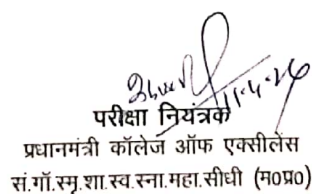 11.4.26
परीक्षा नियंत्रक
प्रधानमंत्री कॉलेज ऑफ एक्सीलेंस
सं.गॉं.स्मृ.शा.स्व.स्ना.महा.सीधी (म०प्र०)